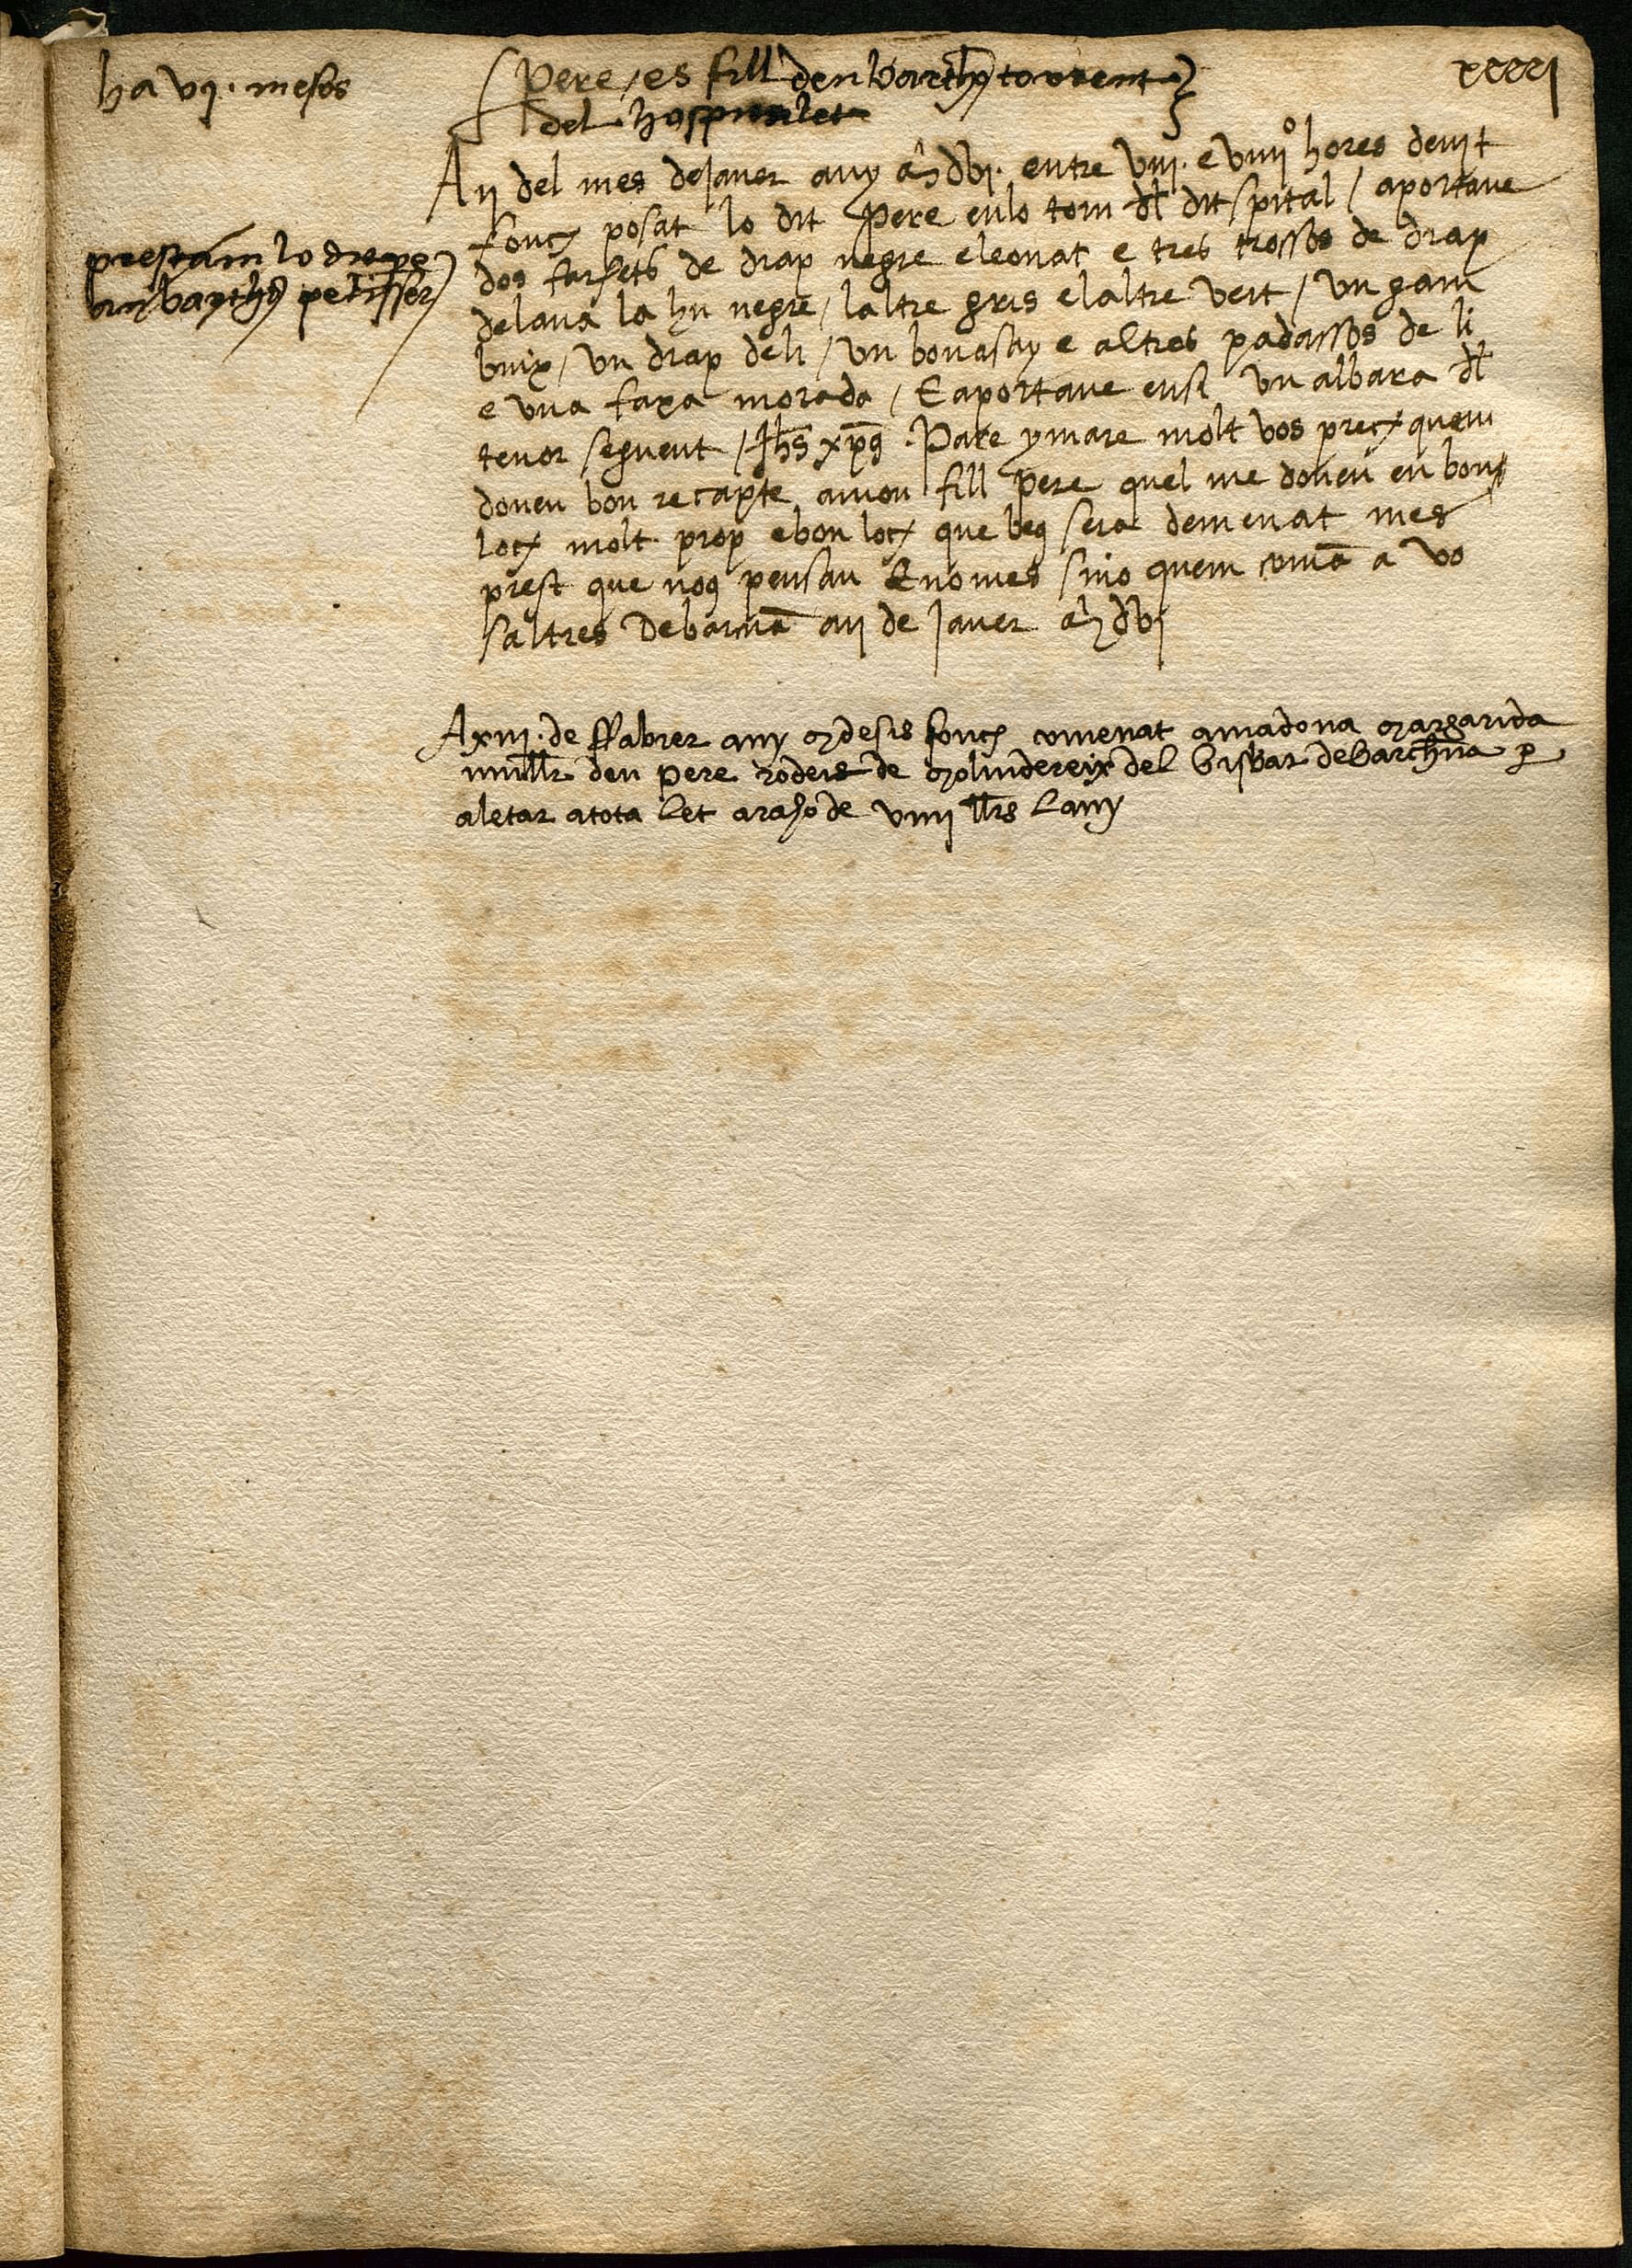 xxxxi
ha vij. mesos
Pere / es fill den barthy torrent
del hospitalet
A ij del mes de Janer any M dvj. entre viij. e viiijº hores de nit
fonch posat lo dit Pere enlo torn dl dit spital / aportave
dos farsets de drap negre e leonat e tres trossos de drap
delana la hu negre / laltre gris e laltre vert / un gam
buix / un drap de li / un bonasay e altres padassos de li
e una faxa morada / E aportave ensi un albara dl
tenor seguent / Jhs xps . Pare y mare molt vos prech quem
doneu bon recapte a mon fill Pere quel me doneu en bon
loch molt prop e bon loch que leg sera demenat mes
prest que nos pensau E no mes sino quem coman a vo
saltres De barcna a ij de Janer M dvj
prestam lo drape
an barthy pelisser
A xvij. de ffabrer any M desis fonch comenat a madona Margarida
mullr den Pere de Molindereix del bisbat de barchna per
aletar a tota let a raho de viiij llrs lany